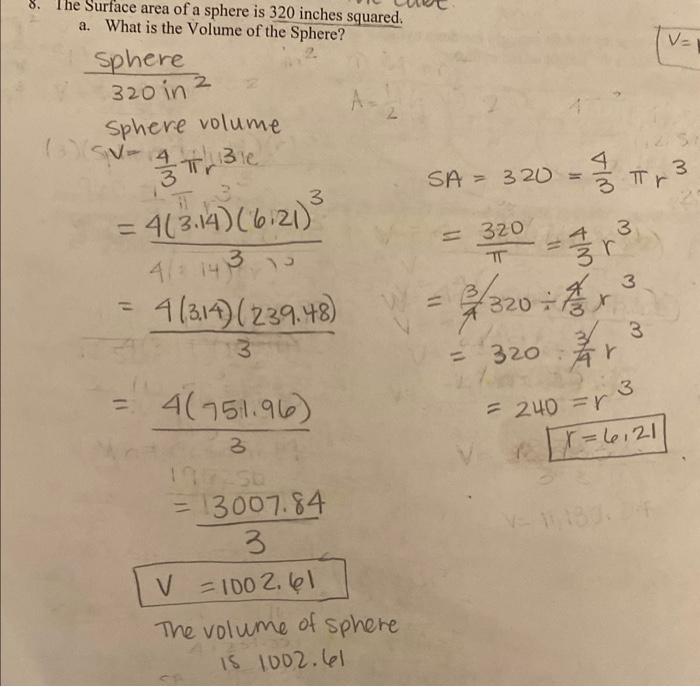 8. The Surface area of a sphere is 320 inches squared.
a. What is the Volume of the Sphere?
V=
sphere
320 in²
sphere volume
V= 4/3 πr³
= 4(3.14)(6.21)³ / 3
= 4(3.14)(239.48) / 3
= 4(751.96) / 3
= 3007.84 / 3
V = 1002.61
The volume of sphere
is 1002.61
SA = 320 = 4/3 πr³
= 320/π = 4/3 r³
= 3/4 320 ÷ 4/3 r³
= 320 · 3/4 r³
= 240 = r³
r = 6.21